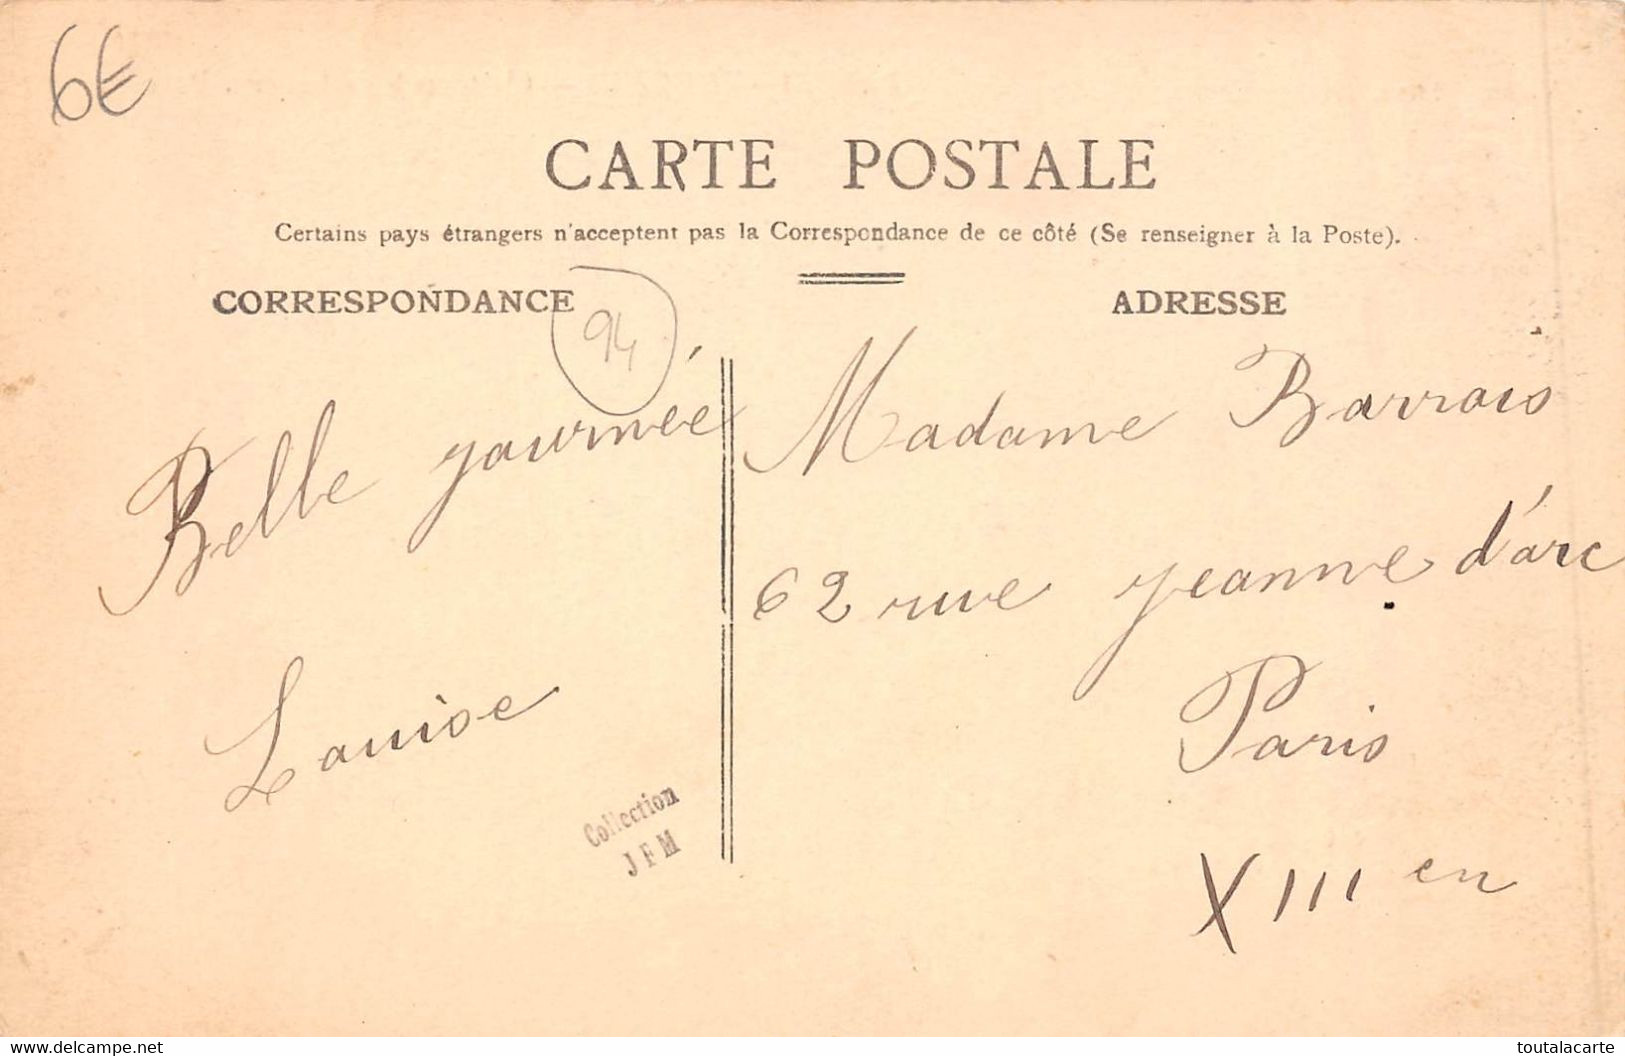 6€
CARTE POSTALE
Certains pays étrangers n'acceptent pas la Correspondance de ce côté (Se renseigner à la Poste).
CORRESPONDANCE
94
ADRESSE
Belle journée
Louise
Madame Barrois
62 rue jeanne d'arc
Paris
XIII en
Collection
J F M
www.delcampe.net
toutalacarte